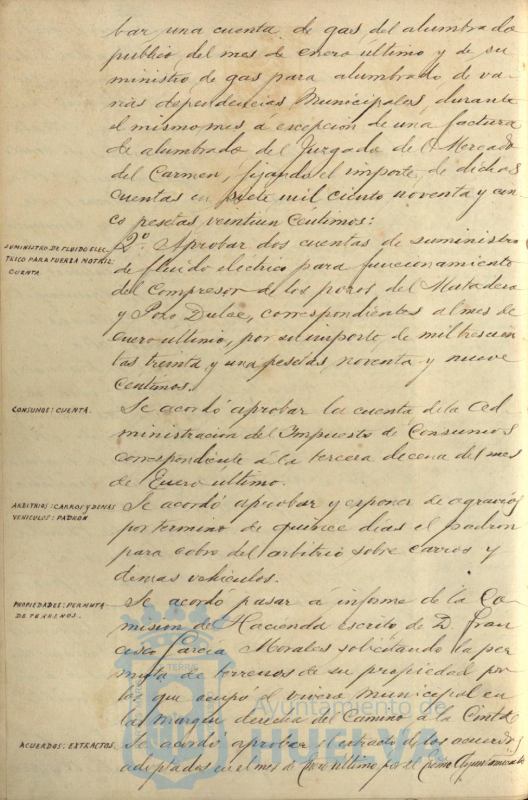 bar una cuenta de gas del alumbrado
publico del mes de enero ultimo y de su
ministro de gas para alumbrado de va
rias dependencias Municipales, durante
el mismo mes á excepcion de una factura
de alumbrado del Juzgado de el Mercado
del Carmen, fijando el importe de dichas
cuentas en siete mil ciento noventa y cin
co pesetas veintiun centimos:
SUMINISTRO DE FLUIDO ELEC-
TRICO PARA FUERZA MOTRIZ:
CUENTA
2º. Aprobar dos cuentas de suministro
de fluido electrico para funcionamiento
del Compresor de los pozos del Matadero
y Pozo Dulce, correspondientes al mes de
enero ultimo, por su importe de mil trescien
tas treinta y una pesetas noventa y nueve
centimos.
CONSUMOS: CUENTA.
Se acordó aprobar la cuenta de la Ad
ministracion del Impuesto de Consumos
correspondiente á la tercera decena del mes
de Enero ultimo.
ARBITRIOS: CARROS Y DEMAS
VEHICULOS: PADRON
Se acordó aprobar y esponer de agravios
por termino de quince dias el padron
para cobro del arbitrio sobre carros y
demas vehiculos.
PROPIEDADES: PERMUTA
DE TERRENOS.
Se acordó pasar á informe de la Co-
mision de Hacienda escrito de D. Fran
cisco Garcia Morales solicitando la per
muta de terrenos de su propiedad por
los que ocupa el vivero municipal en
la margen derecha del Camino á la Cinta.
ACUERDOS: EXTRACTOS.
Se acordó aprobar el extracto de los acuerdos
adoptados en el mes de Enero ultimo por el Excmo Ayuntamiento
Ayuntamiento de
HUELVA